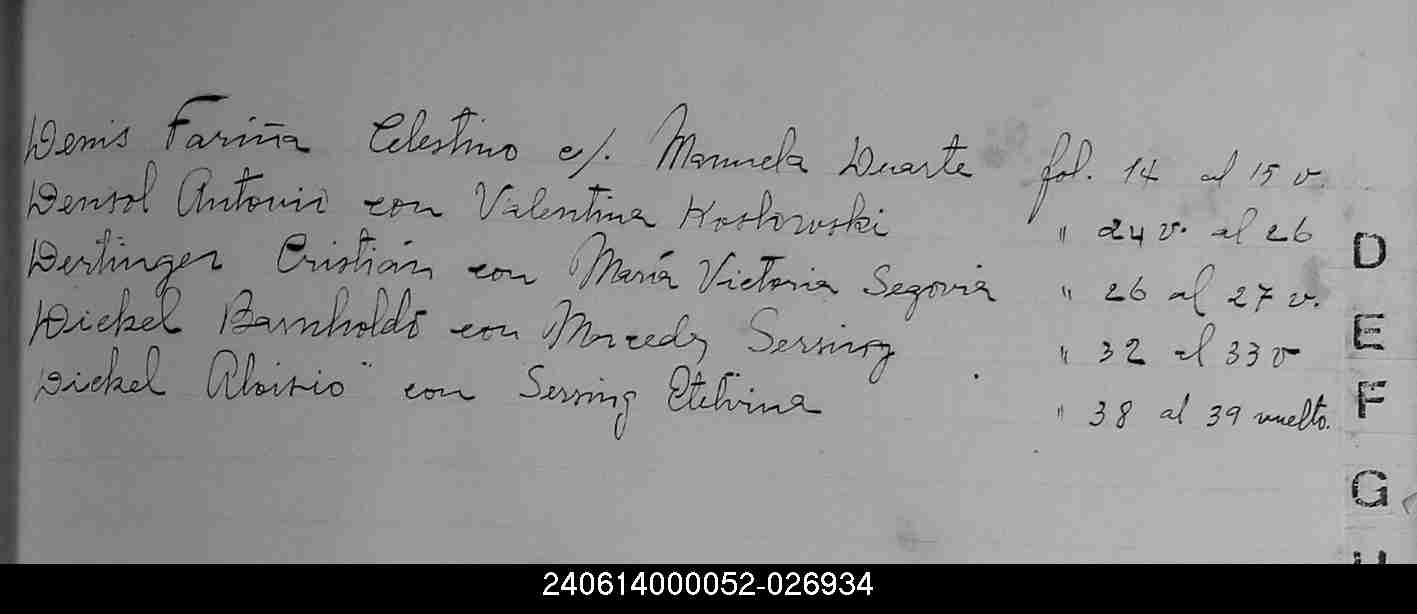 Denis Fariña Celestino c/. Manuela Duarte fol. 14 al 15 v.
Densol Antonio con Valentina Koslowski " 24 v. al 26
Dertinger Cristián con María Victoria Segovia " 26 al 27 v.
Dickel Barnholdo con Mercedes Sersing " 32 al 33 v
Dickel Aloisio con Sersing Etelvina " 38 al 39 vuelto.
D
E
F
G
240614000052-026934